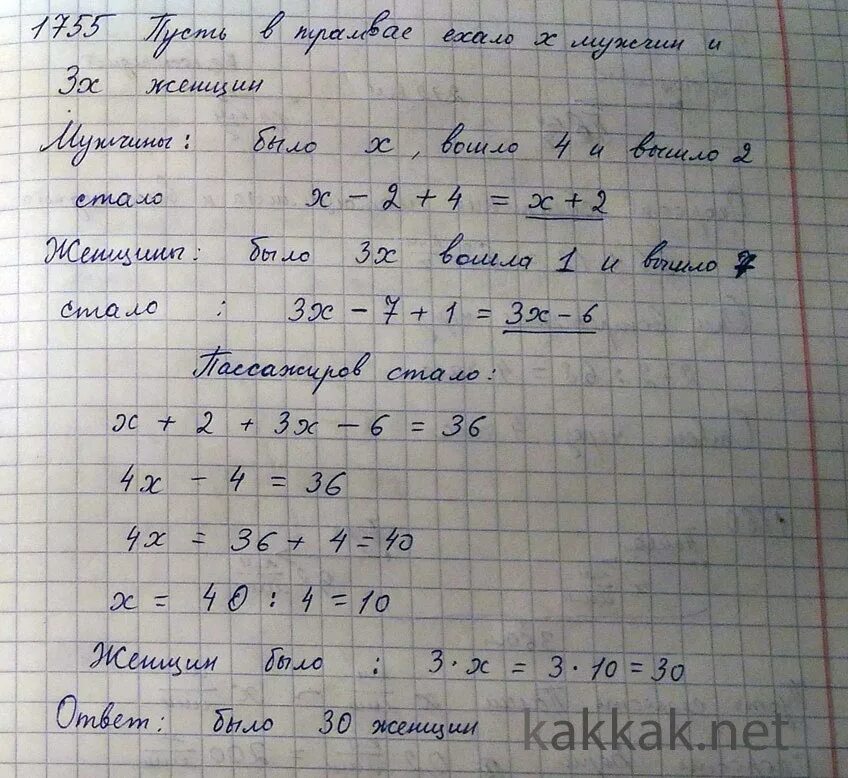 1755 Пусть в трамвае ехало х мужчин и
3х женщин
Мужчины: было х, вошло 4 и вышло 2
стало х - 2 + 4 = х + 2
Женщины: было 3х вошла 1 и вышло 7
стало : 3х - 7 + 1 = 3х - 6
Пассажиров стало:
х + 2 + 3х - 6 = 36
4х - 4 = 36
4х = 36 + 4 = 40
х = 40 : 4 = 10
Женщин было : 3 · х = 3 · 10 = 30
Ответ: было 30 женщин
kakkak.net